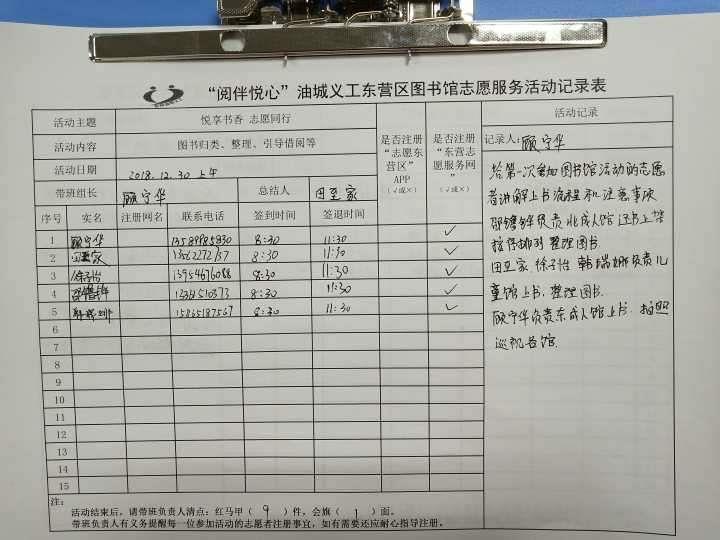 “阅伴悦心”油城义工东营区图书馆志愿服务活动记录表
活动主题 悦享书香 志愿同行
活动内容 图书归类、整理、引导借阅等
活动日期 2018.12.30 上午
带班组长 顾宁华 总结人 田至家
是否注册“志愿东营区”APP（√或×）
是否注册“东营志愿服务网”（√或×）
序号 实名 注册网名 联系电话 签到时间 签退时间
1 顾宁华 13589985830 8:30 11:30 ✓
2 田至家 8:30 11:30 ✓
3 徐子怡 13954676088 8:30 11:30 ✓
4 8:30 11:30 ✓
5 15865187567 8:30 11:30 ✓
6
7
8
9
10
11
12
13
14
15
注：
活动结束后，请带班负责人清点：红马甲（ 9 ）件，会旗（ 1 ）面。
带班负责人有义务提醒每一位参加活动的志愿者注册事宜，如有需要还应耐心指导注册。
活动记录
记录人：顾宁华
给第一次参加图书馆活动的志愿
者讲解上书流程和注意事项
负责北成人馆还书上架
整理图书
田至家 徐子怡 韩瑞娜负责儿
童馆上书，整理图书.
顾宁华负责东成人馆上书，拍照
巡视书馆.